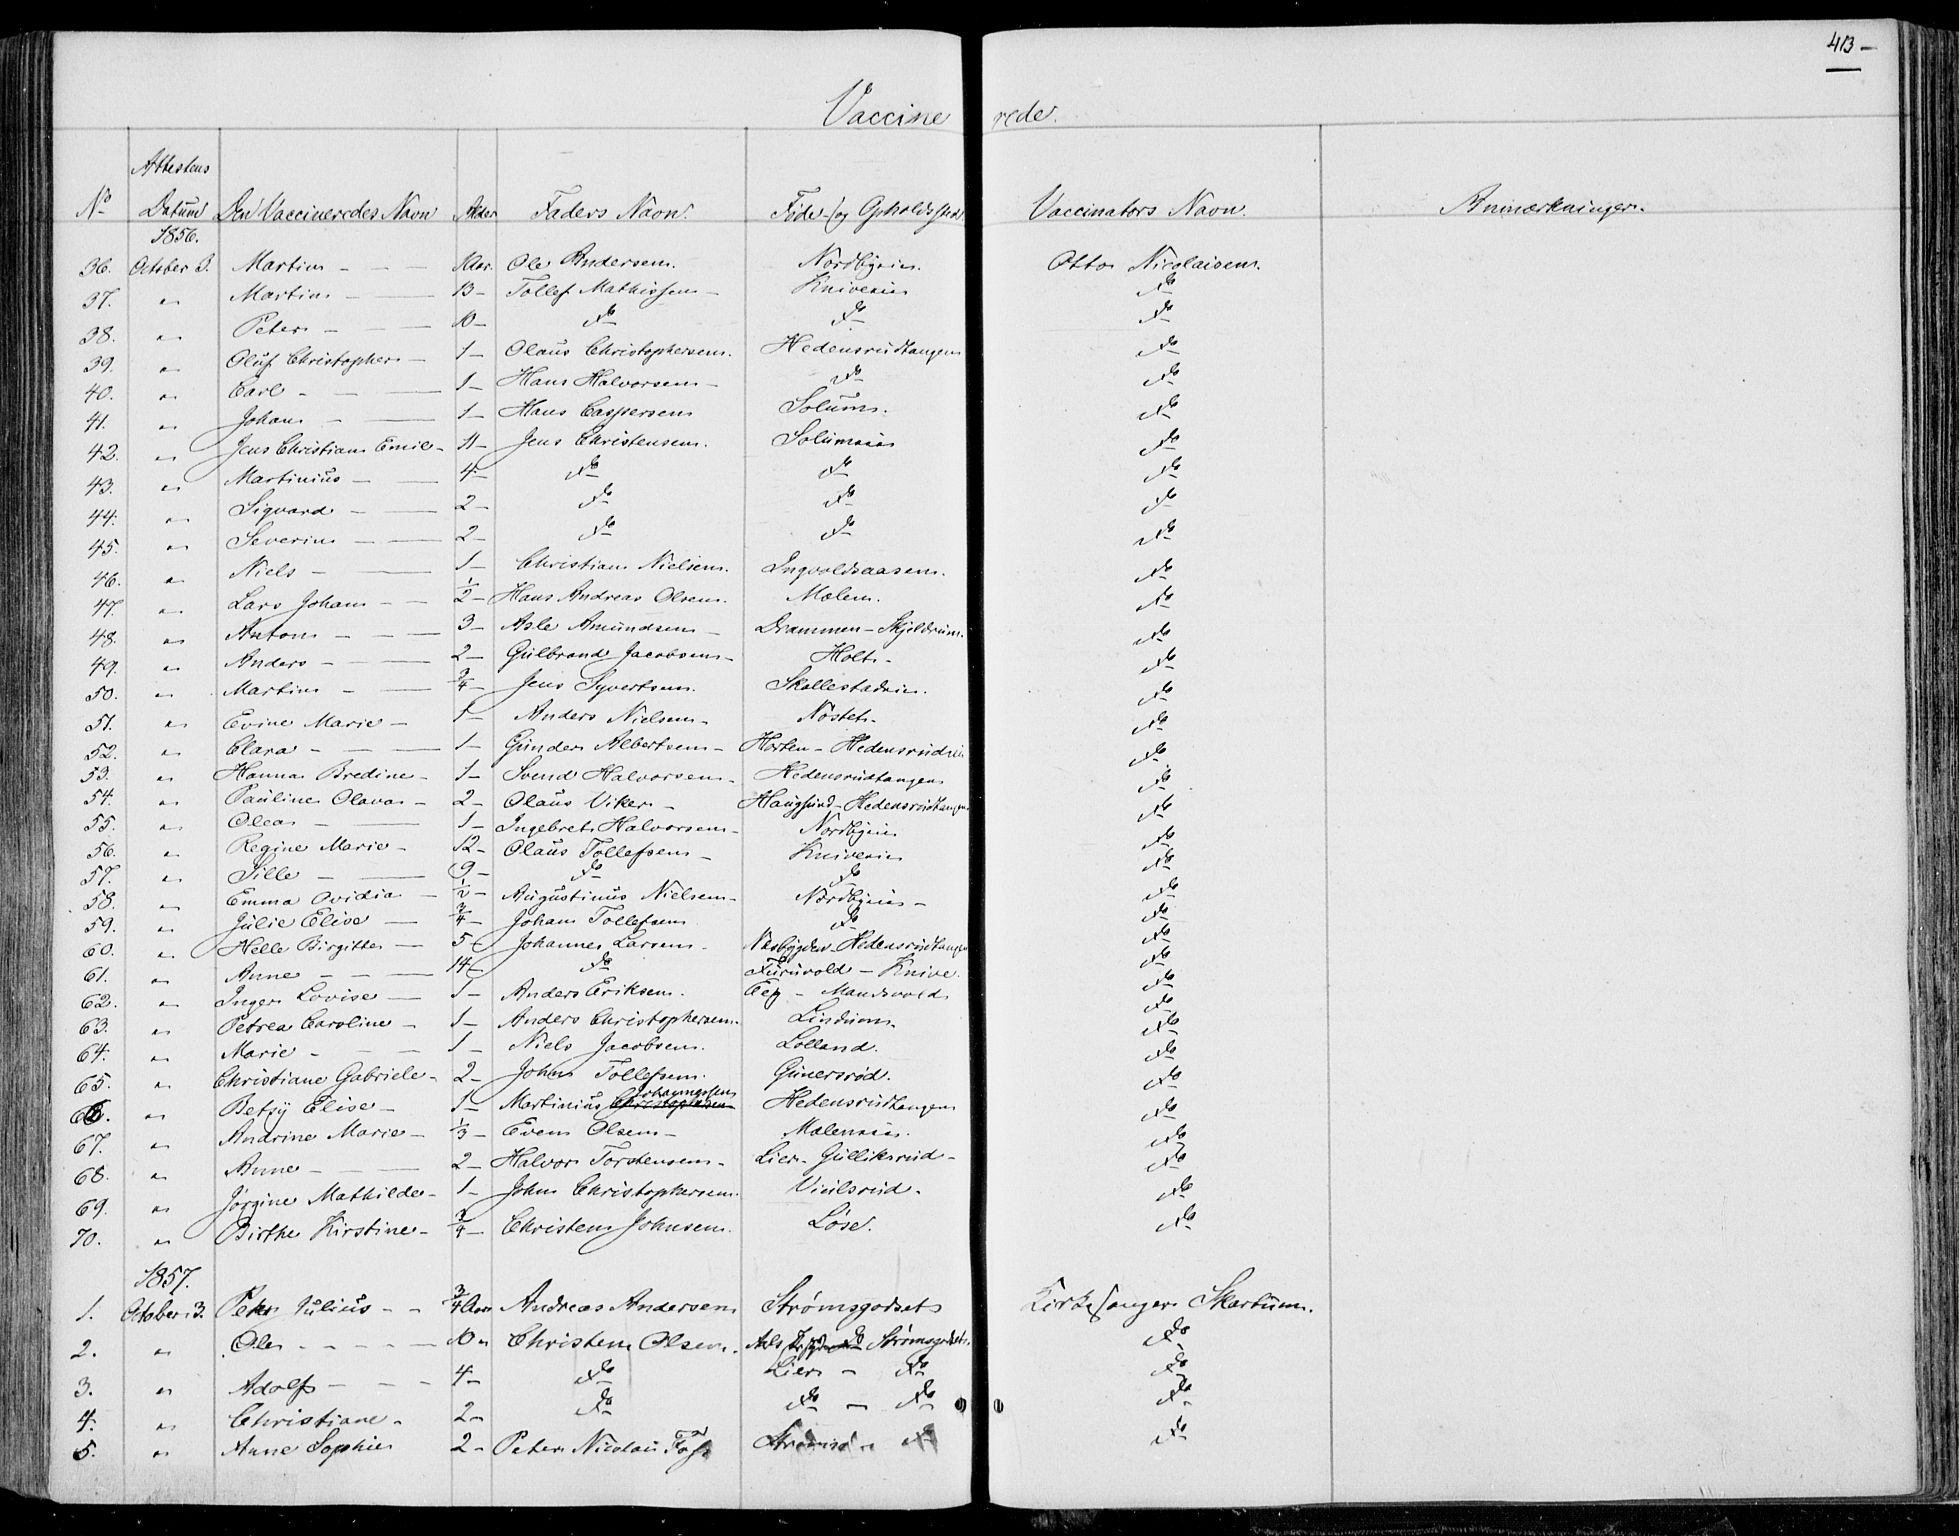 413 –
Vaccinerede.
No Attestens Datum Den Vaccineredes Navn Alder Faders Navn. Føde- og Opholdssted Vaccinators Navn. Anmærkninger.
1856.
36. October 3. Martin – – Ole Andersen. Nordbyeie. Otto Nicolaisen.
37. " Martin – 13 – Tollef Mathissen – Kniveeie do
38. " Peter – – 10 – do do do
39. " Oluf Christopher – 1 – Olaus Christophersen. Hedensrudtangen do
40. " Carl – – 1 – Hans Halvorsen – do do
41. " Johan – – 1 – Hans Caspersen Solum. do
42. " Jens Christian Emil – 11 – Jens Christensen. Solumeie do
43. " Martinius – – 4 – do do do
44. " Sigvard – – 2 – do do do
45. " Severin – – 2 – do do do
46. " Niels – – 1 – Christian Nielsen. Ingvoldsaasen. do
47. " Lars Johan – – 1/2 – Hans Andreas Olsen. Mælen. do
48. " Anton – – – 3 – Asle Amundsen – Drammen – Skjeldrum. do
49. " Anders – – 2 – Gulbrand Jacobsen – Holt – do
50. " Martin – – 3/4 – Jens Syvertsen. Skallestadeie. do
51. " Evine Marie – 1 – Anders Nielsen – Nøstet – do
52. " Clara – – – 1 – Gunder Albertsen – Horten – Hedensrudeie do
53. " Hanna Bredine – 1 – Svend Halvorsen – Hedensrudtangen do
54. " Pauline Olava – 2 – Olaus Viker – Haugsund – Hedensrudtangen do
55. " Olea – – 1 – Ingebret Halvorsen – Nordbyeie do
56. " Regine Marie – 12 – Olaus Tollefsen – Kniveeie do
57. " Sille – – 9 – do do do
58. " Emma Ovidia – 1/2 – Augustinus Nielsen – Nordbyeie – do
59. " Julie Elise – 3/4 – Johan Tollefsen do do
60. " Helle Birgitte – 5 – Johannes Larsen – Næsbygden – Hedensrudtangen do
61. " Anne – – – 14 – do Furuvold – Knive. do
62. " Inger Lovise – 1 – Anders Eriksen. Eeg – Mandsvold do
63. " Petrea Caroline – 1 – Anders Christophersen. Lindum. do
64. " Marie – – – 1 – Niels Jacobsen. Lolland. do
65. " Christiane Gabriele – 2 – Johan Tollefsen. Gunersrød. do
66. " Betsy Elise – 1 – Martinius Christophersen Johannessen Hedensrudtangen do
67. " Andrine Marie – 1/3 – Even Olsen – Mæleneie. do
68. " Anne – – – 2 – Halvor Torstensen – Lier – Gulliksrud – do
69. " Jørgine Mathilde – 1 – John Christophersen. do
70. " Birthe Kirstine – 3/4 – Christen Johnsen. Løse. do
1857.
1. October 3. Peter Julius – – 3/4 Aar Andreas Andersen Strømsgodset Kirkesanger Skartum.
2. " Ole – – – – 10 " Christen Olsen. Strømsgodset. do
3. " Adolf – – – 4 – do Lier – do do
4. " Christiane – 2 – do do – do do
5. " Anne Sophie 2 – Peter Nicolai Foss Strømsø – do do